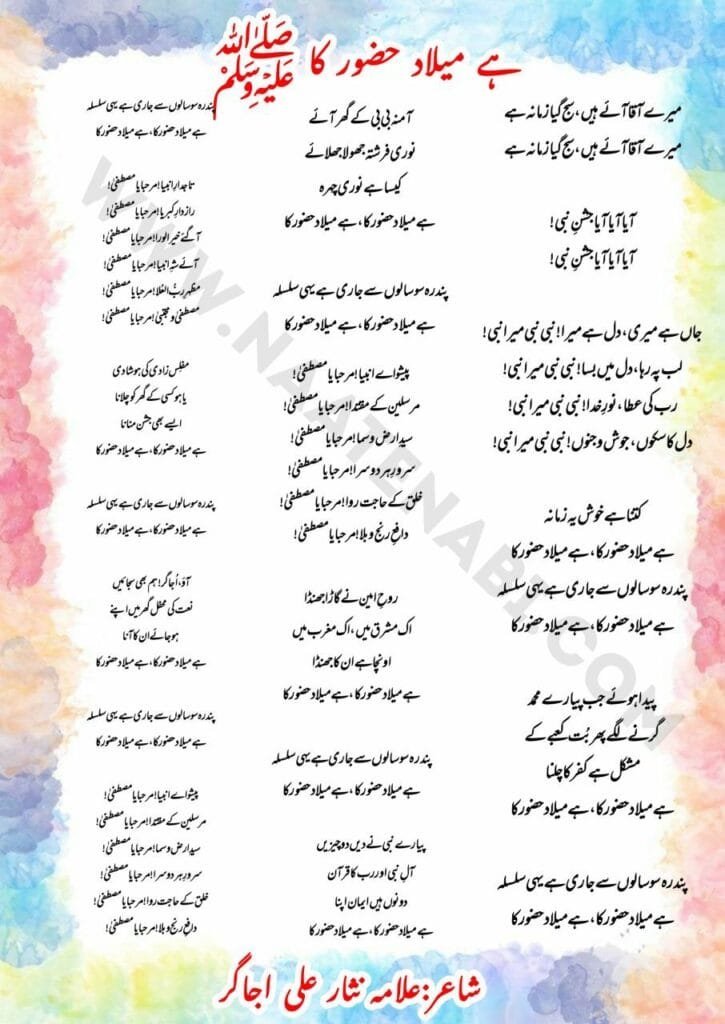 ہے میلاد حضور کا صَلَّی اللہُ عَلَیْہِ وَسَلَّمْ
میرے آقا آئے ہیں، سج گیا زمانہ ہے
میرے آقا آئے ہیں، سج گیا زمانہ ہے
آیا آیا آیا جشنِ نبی!
آیا آیا آیا جشنِ نبی!
جاں ہے میری، دل ہے میرا! نبی نبی میرا نبی!
لب پہ رہا، دل میں بسا! نبی نبی میرا نبی!
رب کی عطا، نورِ خدا! نبی نبی میرا نبی!
دل کا سکوں، جوش و جنوں! نبی نبی میرا نبی!
کتنا ہے خوش یہ زمانہ
ہے میلاد حضور کا، ہے میلاد حضور کا
پندرہ سو سالوں سے جاری ہے یہی سلسلہ
ہے میلاد حضور کا، ہے میلاد حضور کا
پیدا ہوئے جب پیارے محمد
گرنے لگے پھر بُت کعبے کے
مشکل ہے کفر کا چلنا
ہے میلاد حضور کا، ہے میلاد حضور کا
پندرہ سو سالوں سے جاری ہے یہی سلسلہ
ہے میلاد حضور کا، ہے میلاد حضور کا
آمنہ بی بی کے گھر آئے
نوری فرشتہ جھولا جھلائے
کیسا ہے نوری چہرہ
ہے میلاد حضور کا، ہے میلاد حضور کا
پندرہ سو سالوں سے جاری ہے یہی سلسلہ
ہے میلاد حضور کا، ہے میلاد حضور کا
پیشوائے انبیا! مرحبا یا مصطفیٰ!
مرسلین کے مقتدا! مرحبا یا مصطفیٰ!
سیدِ ارض و سما! مرحبا یا مصطفیٰ!
سرورِ ہر دوسرا! مرحبا یا مصطفیٰ!
خلق کے حاجت روا! مرحبا یا مصطفیٰ!
دافعِ رنج و بلا! مرحبا یا مصطفیٰ!
روحِ امین نے گاڑا جھنڈا
اک مشرق میں، اک مغرب میں
اونچا ہے ان کا جھنڈا
ہے میلاد حضور کا، ہے میلاد حضور کا
پندرہ سو سالوں سے جاری ہے یہی سلسلہ
ہے میلاد حضور کا، ہے میلاد حضور کا
پیارے نبی نے دیں دو چیزیں
آلِ نبی اور رب کا قرآن
دونوں ہیں ایمان اپنا
ہے میلاد حضور کا، ہے میلاد حضور کا
پندرہ سو سالوں سے جاری ہے یہی سلسلہ
ہے میلاد حضور کا، ہے میلاد حضور کا
تاجدارِ انبیا! مرحبا یا مصطفیٰ!
رازدارِ کبریا! مرحبا یا مصطفیٰ!
آگئے خیر الورا! مرحبا یا مصطفیٰ!
آئے شہِ انبیا! مرحبا یا مصطفیٰ!
مظہرِ ربُّ العُلا! مرحبا یا مصطفیٰ!
مصطفیٰ و مجتبیٰ! مرحبا یا مصطفیٰ!
مفلس زادی کی ہو شادی
یا ہو کسی کے گھر کو چلانا
ایسے بھی جشن منانا
ہے میلاد حضور کا، ہے میلاد حضور کا
پندرہ سو سالوں سے جاری ہے یہی سلسلہ
ہے میلاد حضور کا، ہے میلاد حضور کا
آؤ، اُجاگر! ہم بھی سجائیں
نعت کی محفل گھر میں اپنے
ہو جائے ان کا آنا
ہے میلاد حضور کا، ہے میلاد حضور کا
پندرہ سو سالوں سے جاری ہے یہی سلسلہ
ہے میلاد حضور کا، ہے میلاد حضور کا
پیشوائے انبیا! مرحبا یا مصطفیٰ!
مرسلین کے مقتدا! مرحبا یا مصطفیٰ!
سیدِ ارض و سما! مرحبا یا مصطفیٰ!
سرورِ ہر دوسرا! مرحبا یا مصطفیٰ!
خلق کے حاجت روا! مرحبا یا مصطفیٰ!
دافعِ رنج و بلا! مرحبا یا مصطفیٰ!
شاعر: علامہ نثار علی اجاگر
WWW.NAATENABI.COM